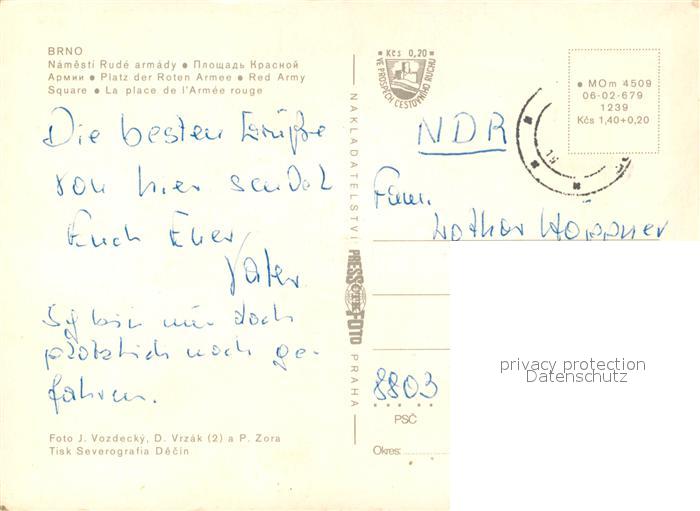 BRNO
Náměstí Rudé armády ● Площадь Красной
Армии ● Platz der Roten Armee ● Red Army
Square ● La place de l'Armée rouge
Die besten Grüße
von hier sendet
Euch Euer
Vater
bin nun doch
plötzlich noch ge-
fahren.
Foto J. Vozdecký, D. Vrzák (2) a P. Zora
Tisk Severografia Děčín
NAKLADATELSTVÍ PRESSFOTO PRAHA
Kčs 0,20
VE PROSPĚCH CESTOVNÍHO RUCHU
● MOm 4509
06-02-679
1239
Kčs 1,40+0,20
NDR
Fam.
Lothar Höppner
8803
PSČ
Okres:
privacy protection
Datenschutz